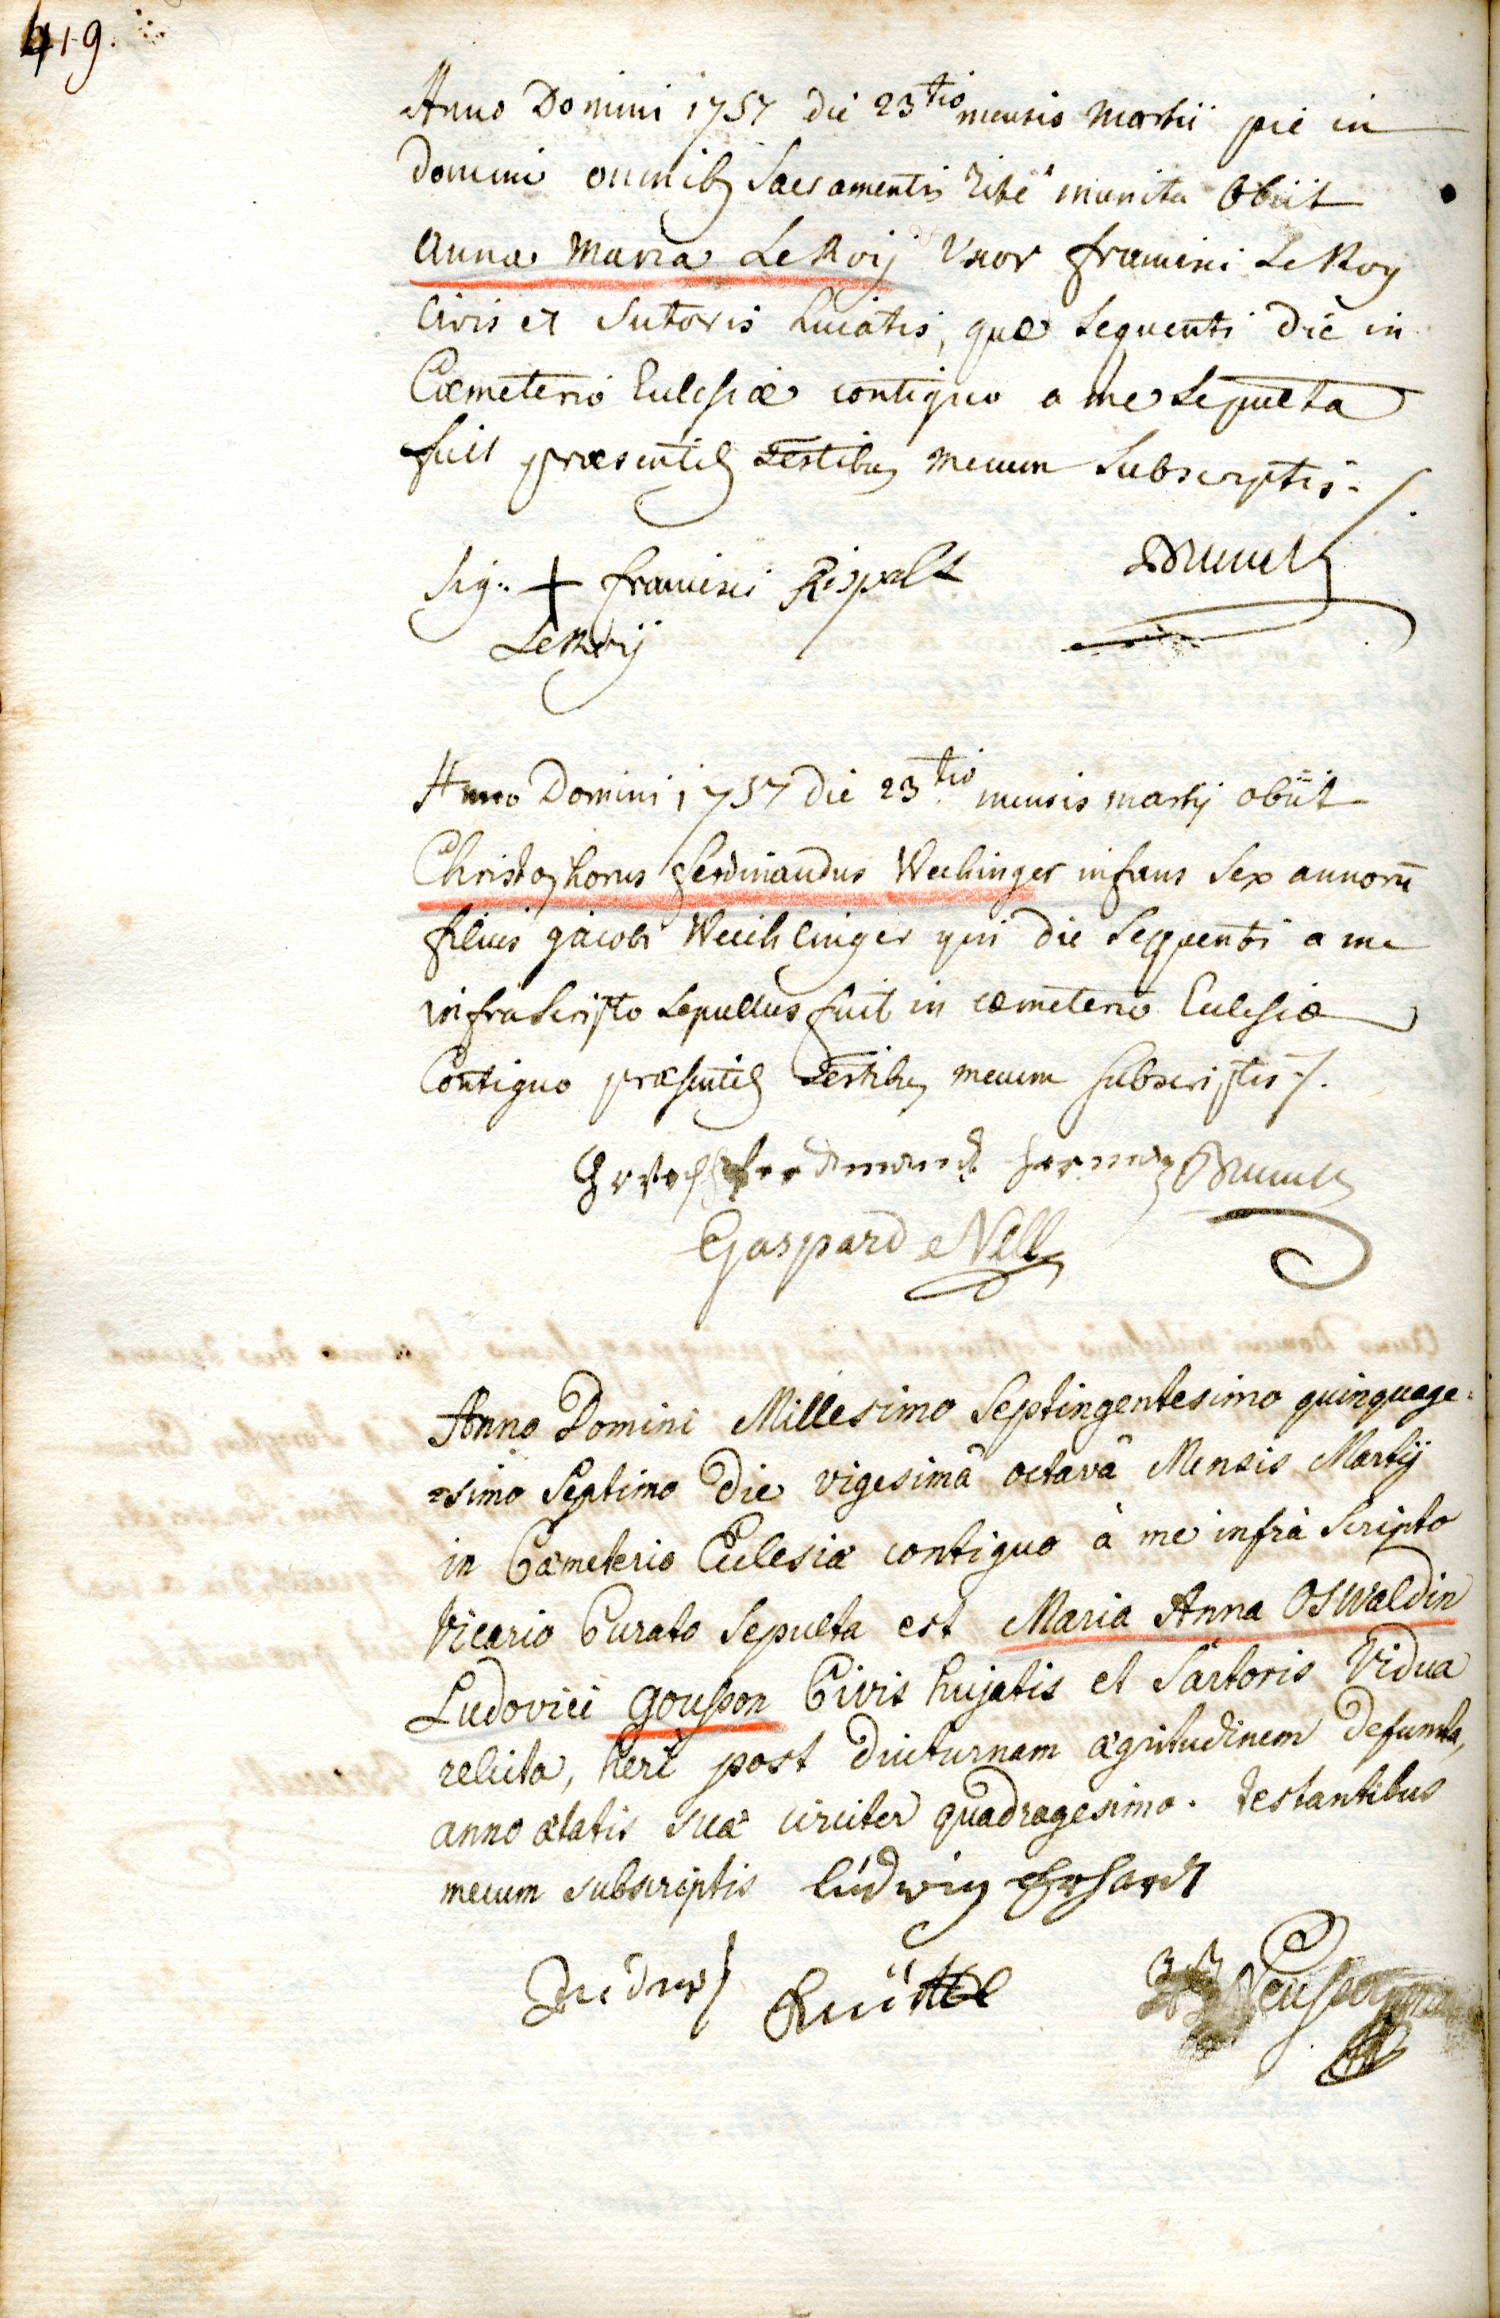 419.
Anno Domini 1757 die 23tio mensis Martii pie in
domini omnibq Sacramentis rite munita Obiit
Anna Maria LeRoij Uxor francisci LeRoy
Civis et Sutoris huiatis, quæ sequenti die in
Cæmeterio Eclesiæ contiguo a me sepulta
fuit præsentibq testibq mecum Subscriptis.
Sig. + francisci Rispalt
LeRoij
Anno Domini 1757 die 23tio mensis martij obiit
Christophorus ferdinandus Wechinger infans sex annorū
filius jacobi Weichlinger qui die sequenti a me
infrascripto sepultus fuit in cæmeterio Eclesiæ
Contiguo præsentibq testibq mecum subscriptis./.
Gaspard Nell
Anno Domini Millesimo Septingentesimo quinquage=
=simo Septimo Die vigesimâ octavâ Mensis Martij
in Cæmeterio Eclesiæ contiguo à me infrà scripto
Vicario Curato Sepulta est Maria Anna Oswaldin
Ludovici Gousson Civis hujatis et Sartoris Vidua
relicta, heri post diuturnam ægritudinem defuncta,
anno ætatis suæ circiter quadragesimo. testantibus
mecum subscriptis lúdwig Erhardt